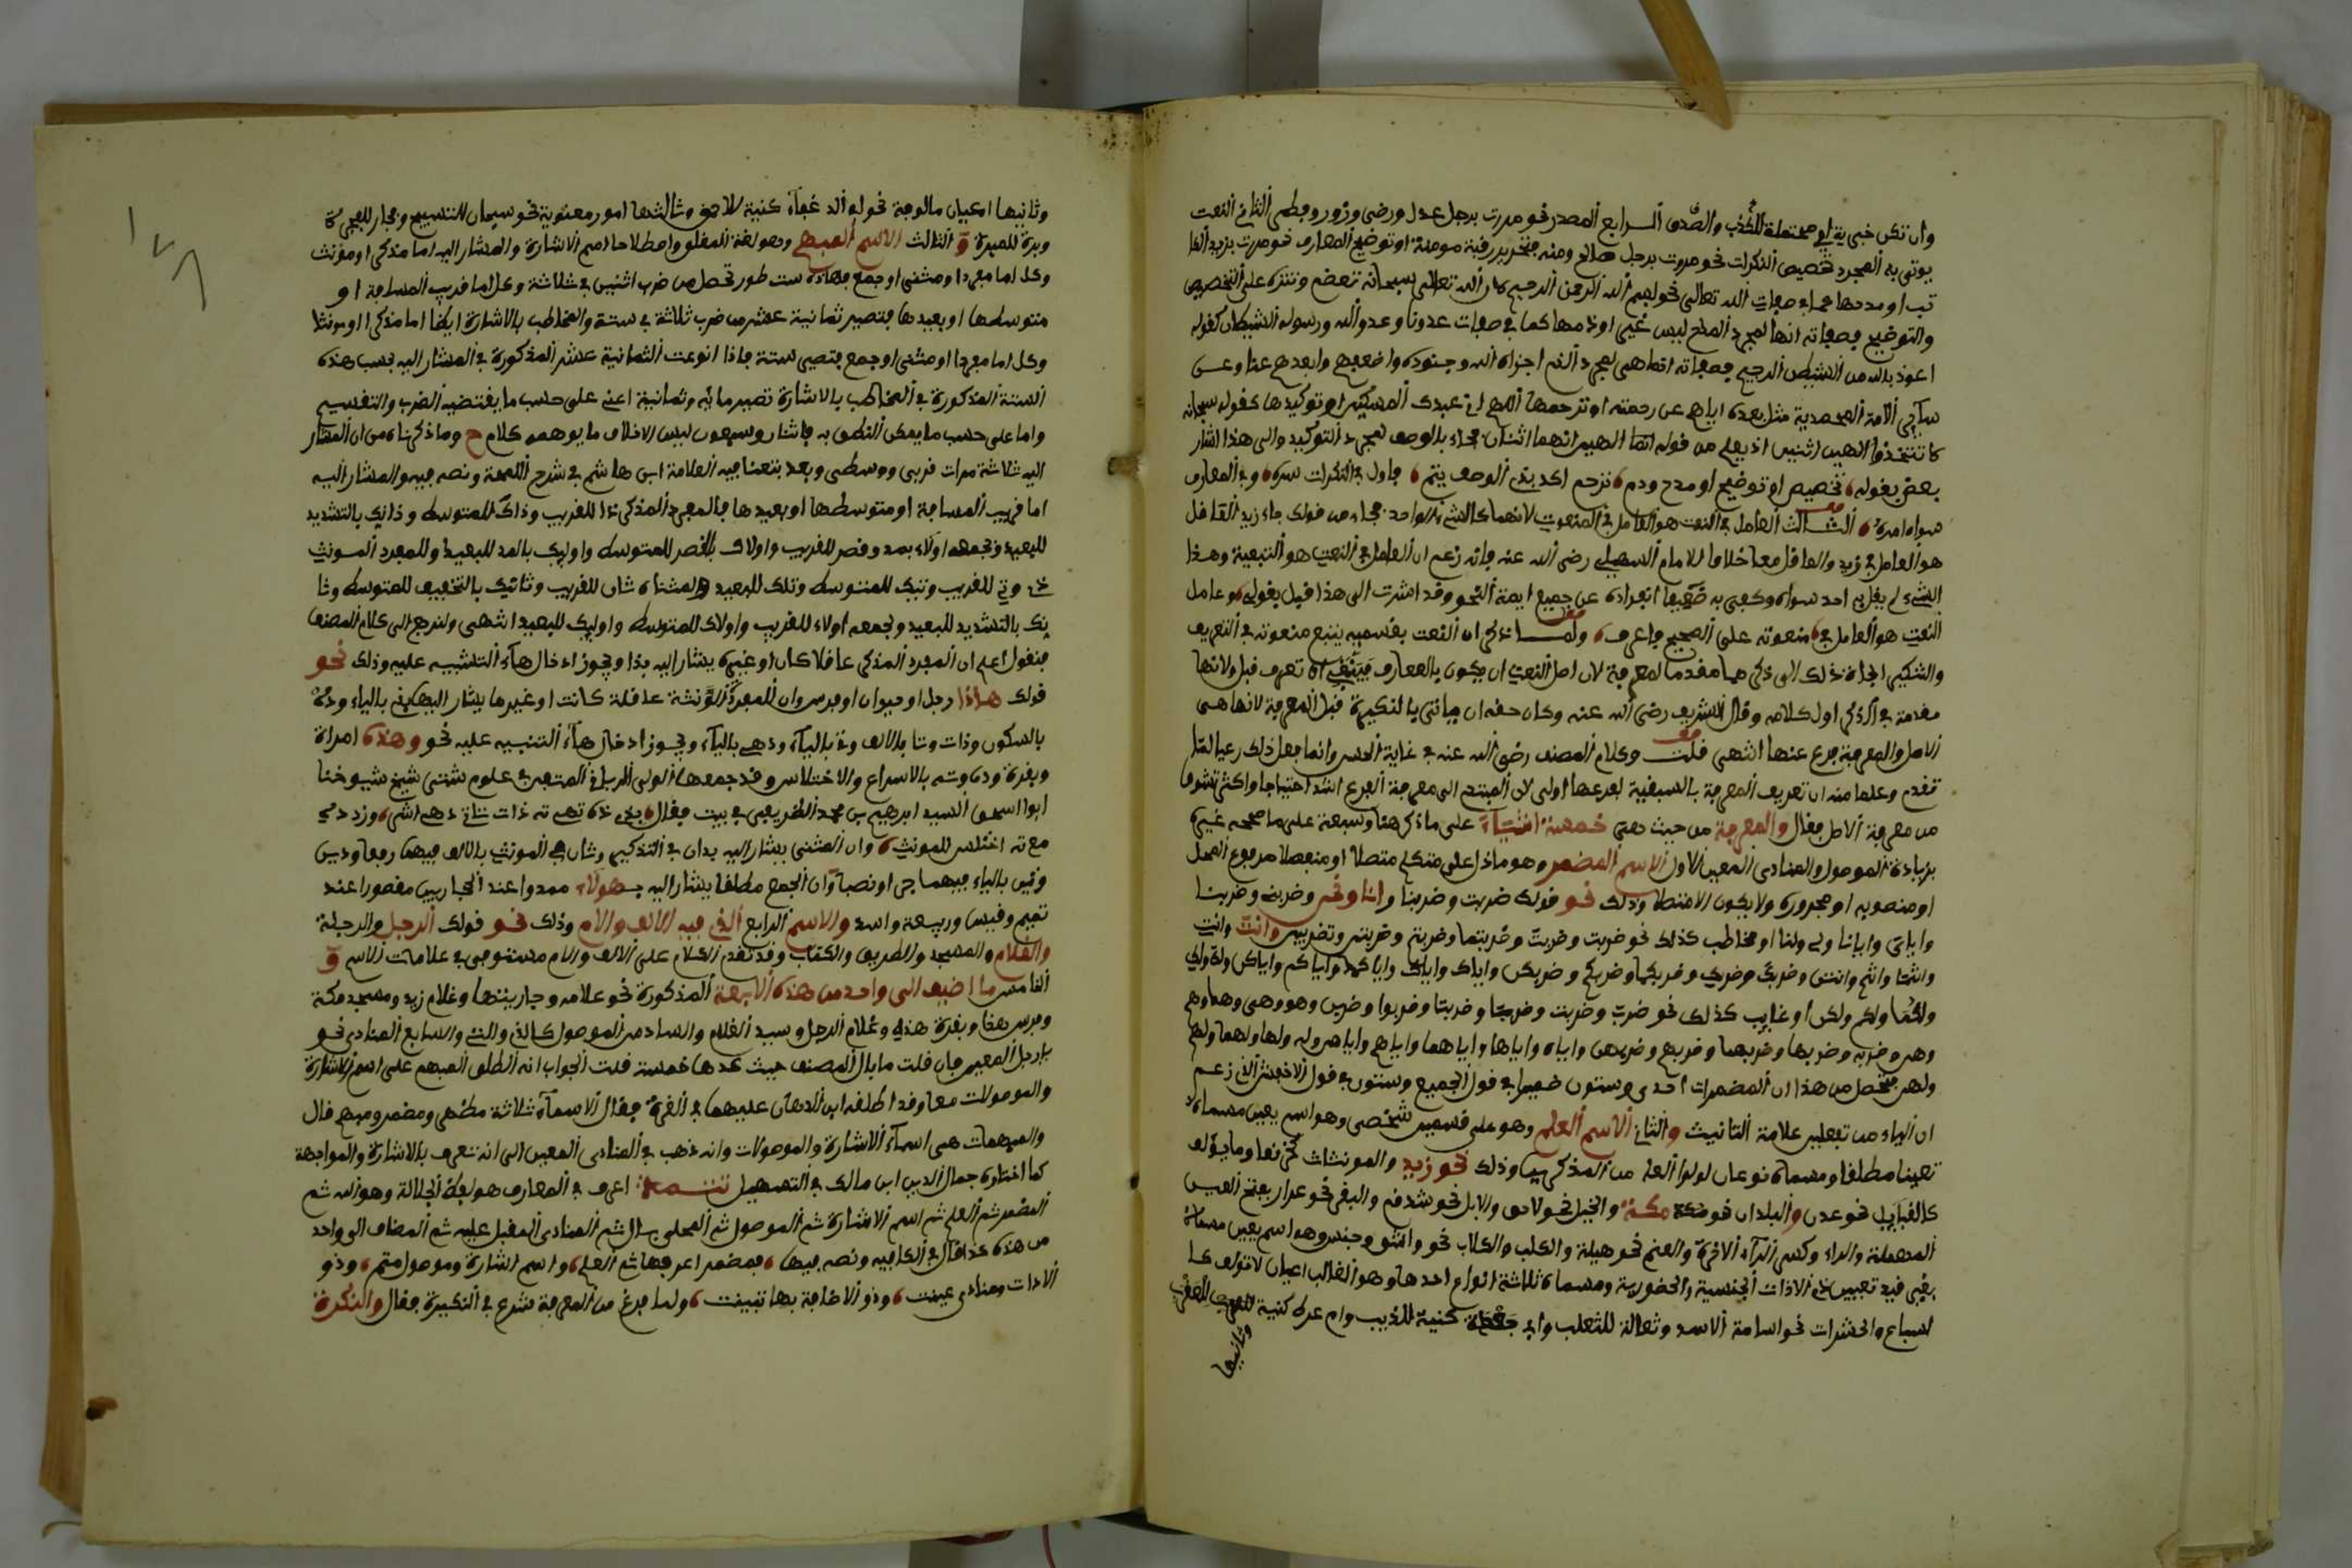 وان تكن خبرية اي محتملة للكذب والصدق الرابع المصدر نحو مررت برجل عدل ورضى وزور وفطر الثاني النعت
يوتى به لمجرد تخصيص النكرات نحو مررت برجل صالح ومنه فتحرير رقبة مومنة او توضيح المعارف نحو مررت بزيد الكا
تب او مدحها مما جاء صفات الله تعالى نحو بسم الله الرحمن الرحيم لان الله تعالى سبحانه تعظم وتنزه على التخصيص
والتوضيح فصفاته انها لمجرد المدح ليس غير او ذمها كما في صفات عدونا وعدو الله ورسوله الشيطان كقوله
اعوذ بالله من الشيطان الرجيم فصفاته انما هي لمجرد الذم اجزاه الله وجنوده واضعفهم وابعدهم عنا وعن
ساير الامة المحمدية مثل بعده اياهم عن رحمته او ترحمها اللهم اني عبدك المسكين او توكيدها كقوله سبحانه
لا تتخذوا الهين اثنين اذ يعلم من قوله الهين انهما اثنان فجاء بالوصف لمجرد التوكيد والى هذا اشار
بعض بقوله تخصيص او توضيح او مدح وذم نزحم اكد بذي الوصف يتم فاول في النكرات سره وفي المعارف
سواه امره الثالث العامل في النعت هو العامل في المنعوت لانهما كالشيء الواحد فجاء من قولك جاء زيد الفاضل
هو العامل في زيد والفاضل معا خلافا للامام السهيلي رضي الله عنه فانه زعم ان العامل في النعت هو التبعية وهذا
الشيء لم يقل به احد سواه وكفى به ضعيفا انفراده عن جميع ايمة النحو وقد اشرت الى هذا قبل بقولي وعامل
النعت هو العامل في منعوته على الصحيح فاعرف ولما ذكر ان النعت بقسميه يتبع منعوته في التعريف
والتنكير الجاه ذلك الى ذكرهما مقدما لمعرفة لان اصل النعت ان يكون بالمعارف فينبغي ان تعرف قبل ولانها
مقدمة في الذكر اول كلامه وقال الشريف رضي الله عنه وكان حقه ان ياتي بالنكرة قبل المعرفة لانها هي
الاصل والمعرفة فرع عنها انتهى قلت وكلام المصنف رضي الله عنه في غاية الحسن وانما فعل ذلك رعيا لما
تقدم وعلما منه ان تعريف المعرفة بالسبقية لفرعها اولى لان المبتدي الى معرفة الفرع اشد احتياجا واكثر تشوفا
من معرفة الاصل فقال والمعرفة من حيث هي خمسة اشياء على ما ذكر هنا وسبعة على ما صححه غيره
بزيادة الموصول والمنادى المعين الاول الاسم المضمر وهو ما دل على متكلم متصلا او منفصلا مرفوع المحل
او منصوبه او مجروره ولا يكون الا متصلا وذلك نحو قولك ضربت وضربنا وانا ونحن وضربني وضربنا
واياي وايانا ولي ولنا او مخاطب كذلك نحو ضربت وضربت وضربتما وضربتم وضربتن وتضربين وانت وانت
وانتما وانتم وانتن وضربك وضربك وضربكما وضربكم وضربكن واياك واياك واياكما واياكم واياكن ولك ولك
ولكما ولكم ولكن او غايب كذلك نحو ضرب وضربت وضربا وضربتا وضربوا وضربن وهو وهي وهما وهم
وهن وضربه وضربها وضربهما وضربهم وضربهن واياه واياها واياهما واياهم واياهن وله ولها ولهما ولهم
ولهن فتحصل من هذا ان المضمرات احدى وستون ضميرا في قول الجميع وستون في قول الاخفش الذي زعم
ان الياء من تفعلين علامة التانيث والثاني الاسم العلم وهو على قسمين شخصي وهو اسم يعين مسماه
تعيينا مطلقا ومسماه نوعان اولوا العلم من المذكرين وذلك نحو زيد والمونثات كخرنقا وما يولف
كالقبايل نحو عدن والبلدان نحو مكة والخيل نحو لاحق والابل نحو شدقم والبقر نحو عرار بفتح العين
المهملة والراء وكسر الراء الاخرة والغنم نحو هيلة والكلب والكلاب نحو واشق وجنسي وهو اسم يعين مسماه
بغير قيد تعيين ذي الادات الجنسية والحضورية ومسماه ثلاثة انواع احدها وهو الغالب اعيان لا تولف كا
لسباع والحشرات نحو اسامة الاسد وثعالة للثعلب وابو جعدة كنية للذيب وام عريط كنية للعقرب
وثانيها
وثانيها اعيان مالوفة نحو ابو الدغفاء كنية للاحمق وثالثها امور معنوية نحو سبحان للتسبيح وفجار للفجرة
وبرة للمبرة والثالث الاسم المبهم وهو لغة المغلق واصطلاحا اسم الاشارة والمشار اليه اما مذكر او مونث
وكل اما مفرد او مثنى او جمع فهاذه ست طور تحصل من ضرب اثنين في ثلاثة وكل اما قريب المسافة او
متوسطها او بعيدها فتصير ثمانية عشر من ضرب ثلاثة في ستة والمخاطب بالاشارة ايضا اما مذكر او مونث
وكل اما مفرد او مثنى او جمع فتصير ستة فاذا انوعت الثمانية عشر المذكورة في المشار اليه بحسب هذه
الستة المذكورة في المخاطب بالاشارة تصير مائة وثمانية اعني على حسب ما يقتضيه الضرب والتقسيم
واما على حسب ما يمكن النطق به فاثنان وسبعون ليس الا خلاف ما يوهمه كلام ح وما ذكرناه من ان المشار
اليه ثلاثة مرات قربى ووسطى وبعد تبعنا فيه العلامة ابن هاشم في شرح اللمحة ونصه فيه والمشار اليه
اما قريب المسافة او متوسطها او بعيدها فالمفرد المذكر ذا للقريب وذاك للمتوسط وذلك بالتشديد
للبعيد ونجمعه اولاء بمد وقصر للقريب واولاك بالقصر للمتوسط واوليك بالمد للبعيد وللمفرد المونث
ذي وتي للقريب وتيك للمتوسط وتلك للبعيد والمثناة تان للقريب وتانك بالتخفيف للمتوسط وتا
نك بالتشديد للبعيد ولجمعه اولاء للقريب واولاك للمتوسط واوليك للبعيد انتهى ولنرجع الى كلام المصنف
فنقول اعلم ان المفرد المذكر عاقلا كان او غيره يشار اليه بذا ويجوز ادخال هاء التنبيه عليه وذلك نحو
قولك هاذا رجل او حيوان او فرس وان المفردة المونثة عاقلة كانت او غيرها يشار اليها بذي بالياء وذه
بالسكون وذات وتا بالالف وتي بالياء وذهي بالياء ويجوز ادخال هاء التنبيه عليه نحو وهذه امراة
وبقرة وذه وته بالاسراع والاختلاس وقد جمعها الولي الرباني المتبحر في علوم شتى شيخ شيوخنا
ابو اسحق السيد ابرهيم بن محمد الظريفي في بيت فقال بذي ذه تهي ته ذات تا تي ذهي اشر وزد ذه
مع ته اختلس للمونث وان المثنى يشار اليه بذان في التذكير وتان في المونث بالالف فيهما رفعا وذين
وتين بالياء فيهما جرا ونصبا وان الجمع مطلقا يشار اليه بـهولاء ممدوا عند الحجازيين مقصورا عند
تميم وقيس وربيعة واسد والاسم الرابع الذي فيه الالف واللام وذلك نحو قولك الرجل والرجلة
والغلام والمسجد والطريق والكتاب وقد تقدم الكلام على الالف واللام مستوفى في علامات الاسم و
الخامس ما اضيف الى واحد من هذه الاربعة المذكورة نحو غلامه وجاريتها وغلام زيد ومسجد مكة
وفرس هذا وبقرة هذه وغلام الرجل وسيد الغلام والسادس الموصول كالذي والتي والسابع المنادى نحو
يارجل المعين فان قلت ما بال المصنف حيث عدها خمسة قلت الجواب انه اطلق المبهم على اسم الاشارة
والموصولات معا وقد اطلقه ابن الدهان عليهما في الغرة فقال الاسماء ثلاثة مظهر ومضمر ومبهم قال
والمبهمات هي اسماء الاشارة والموصولات وانه ذهب في المنادى المعين الى انه تعرف بالاشارة والمواجهة
كما اختاره جمال الدين ابن مالك في التسهيل تتمة اعرف في المعارف هو لفظ الجلالة وهو الله ثم
المضمر ثم العلم ثم اسم الاشارة ثم الموصول ثم المحلى بال ثم المنادى المقبل عليه ثم المضاف الى واحد
من هذه كذا قال في الكافيه ونصه فيها فمضمر اعرفها ثم العلم واسم اشارة وموصول متم وذو
الادات ومنادى عينت وذو الاضافة بها تبينت ولما فرغ من المعرفة شرع في النكرة فقال والنكرة